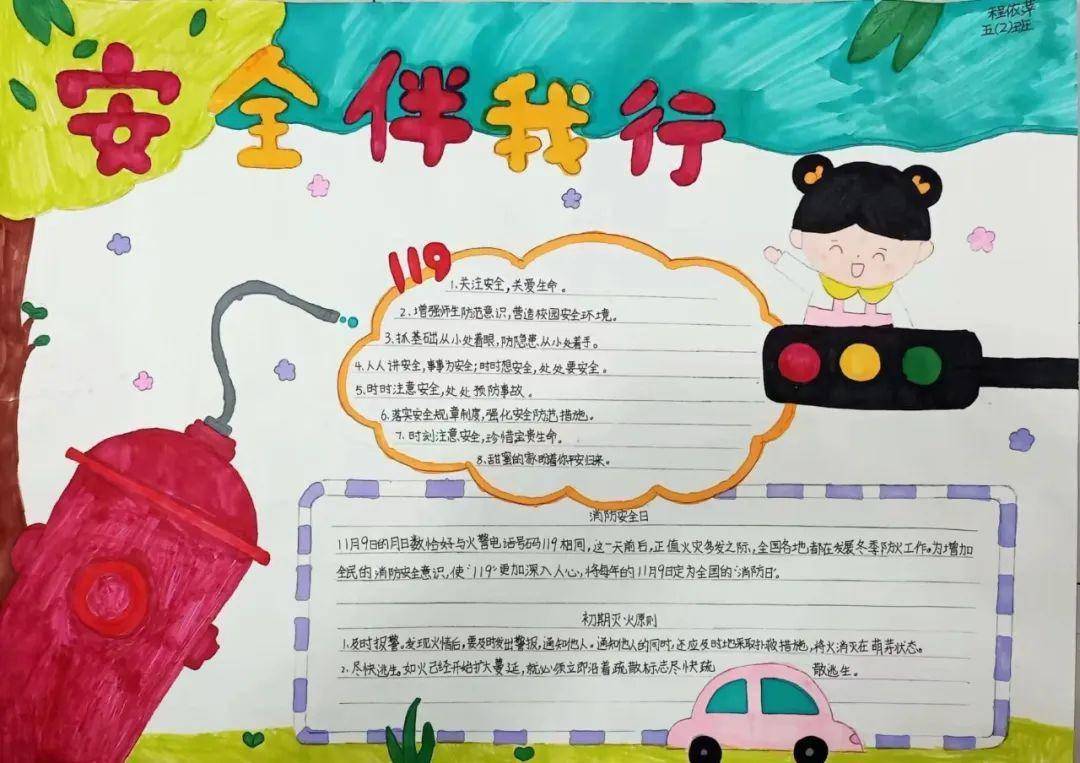 程依萍
五(2)班
安全伴我行
119
1.关注安全,关爱生命。
2.增强师生防范意识,营造校园安全环境。
3.抓基础从小处着眼,防隐患从小处着手。
4.人人讲安全,事事为安全;时时想安全,处处要安全。
5.时时注意安全,处处预防事故。
6.落实安全规章制度,强化安全防范措施。
7.时刻注意安全,珍惜宝贵生命。
8.甜蜜的家盼着你平安归来。
消防安全日
11月9日的月日数恰好与火警电话号码119相同,这一天前后,正值火灾多发之际,全国各地都在发展冬季防火工作。为增加
全民的消防安全意识,使“119”更加深入人心,将每年的11月9日定为全国的“消防日”。
初期灭火原则
1.及时报警。发现火情后,要及时发出警报,通知他人。通知他人的同时,还应及时地采取扑救措施,将火消灭在萌芽状态。
2.尽快逃生。如火已经开始扩大蔓延,就必须立即沿着疏散标志尽快疏 散逃生。